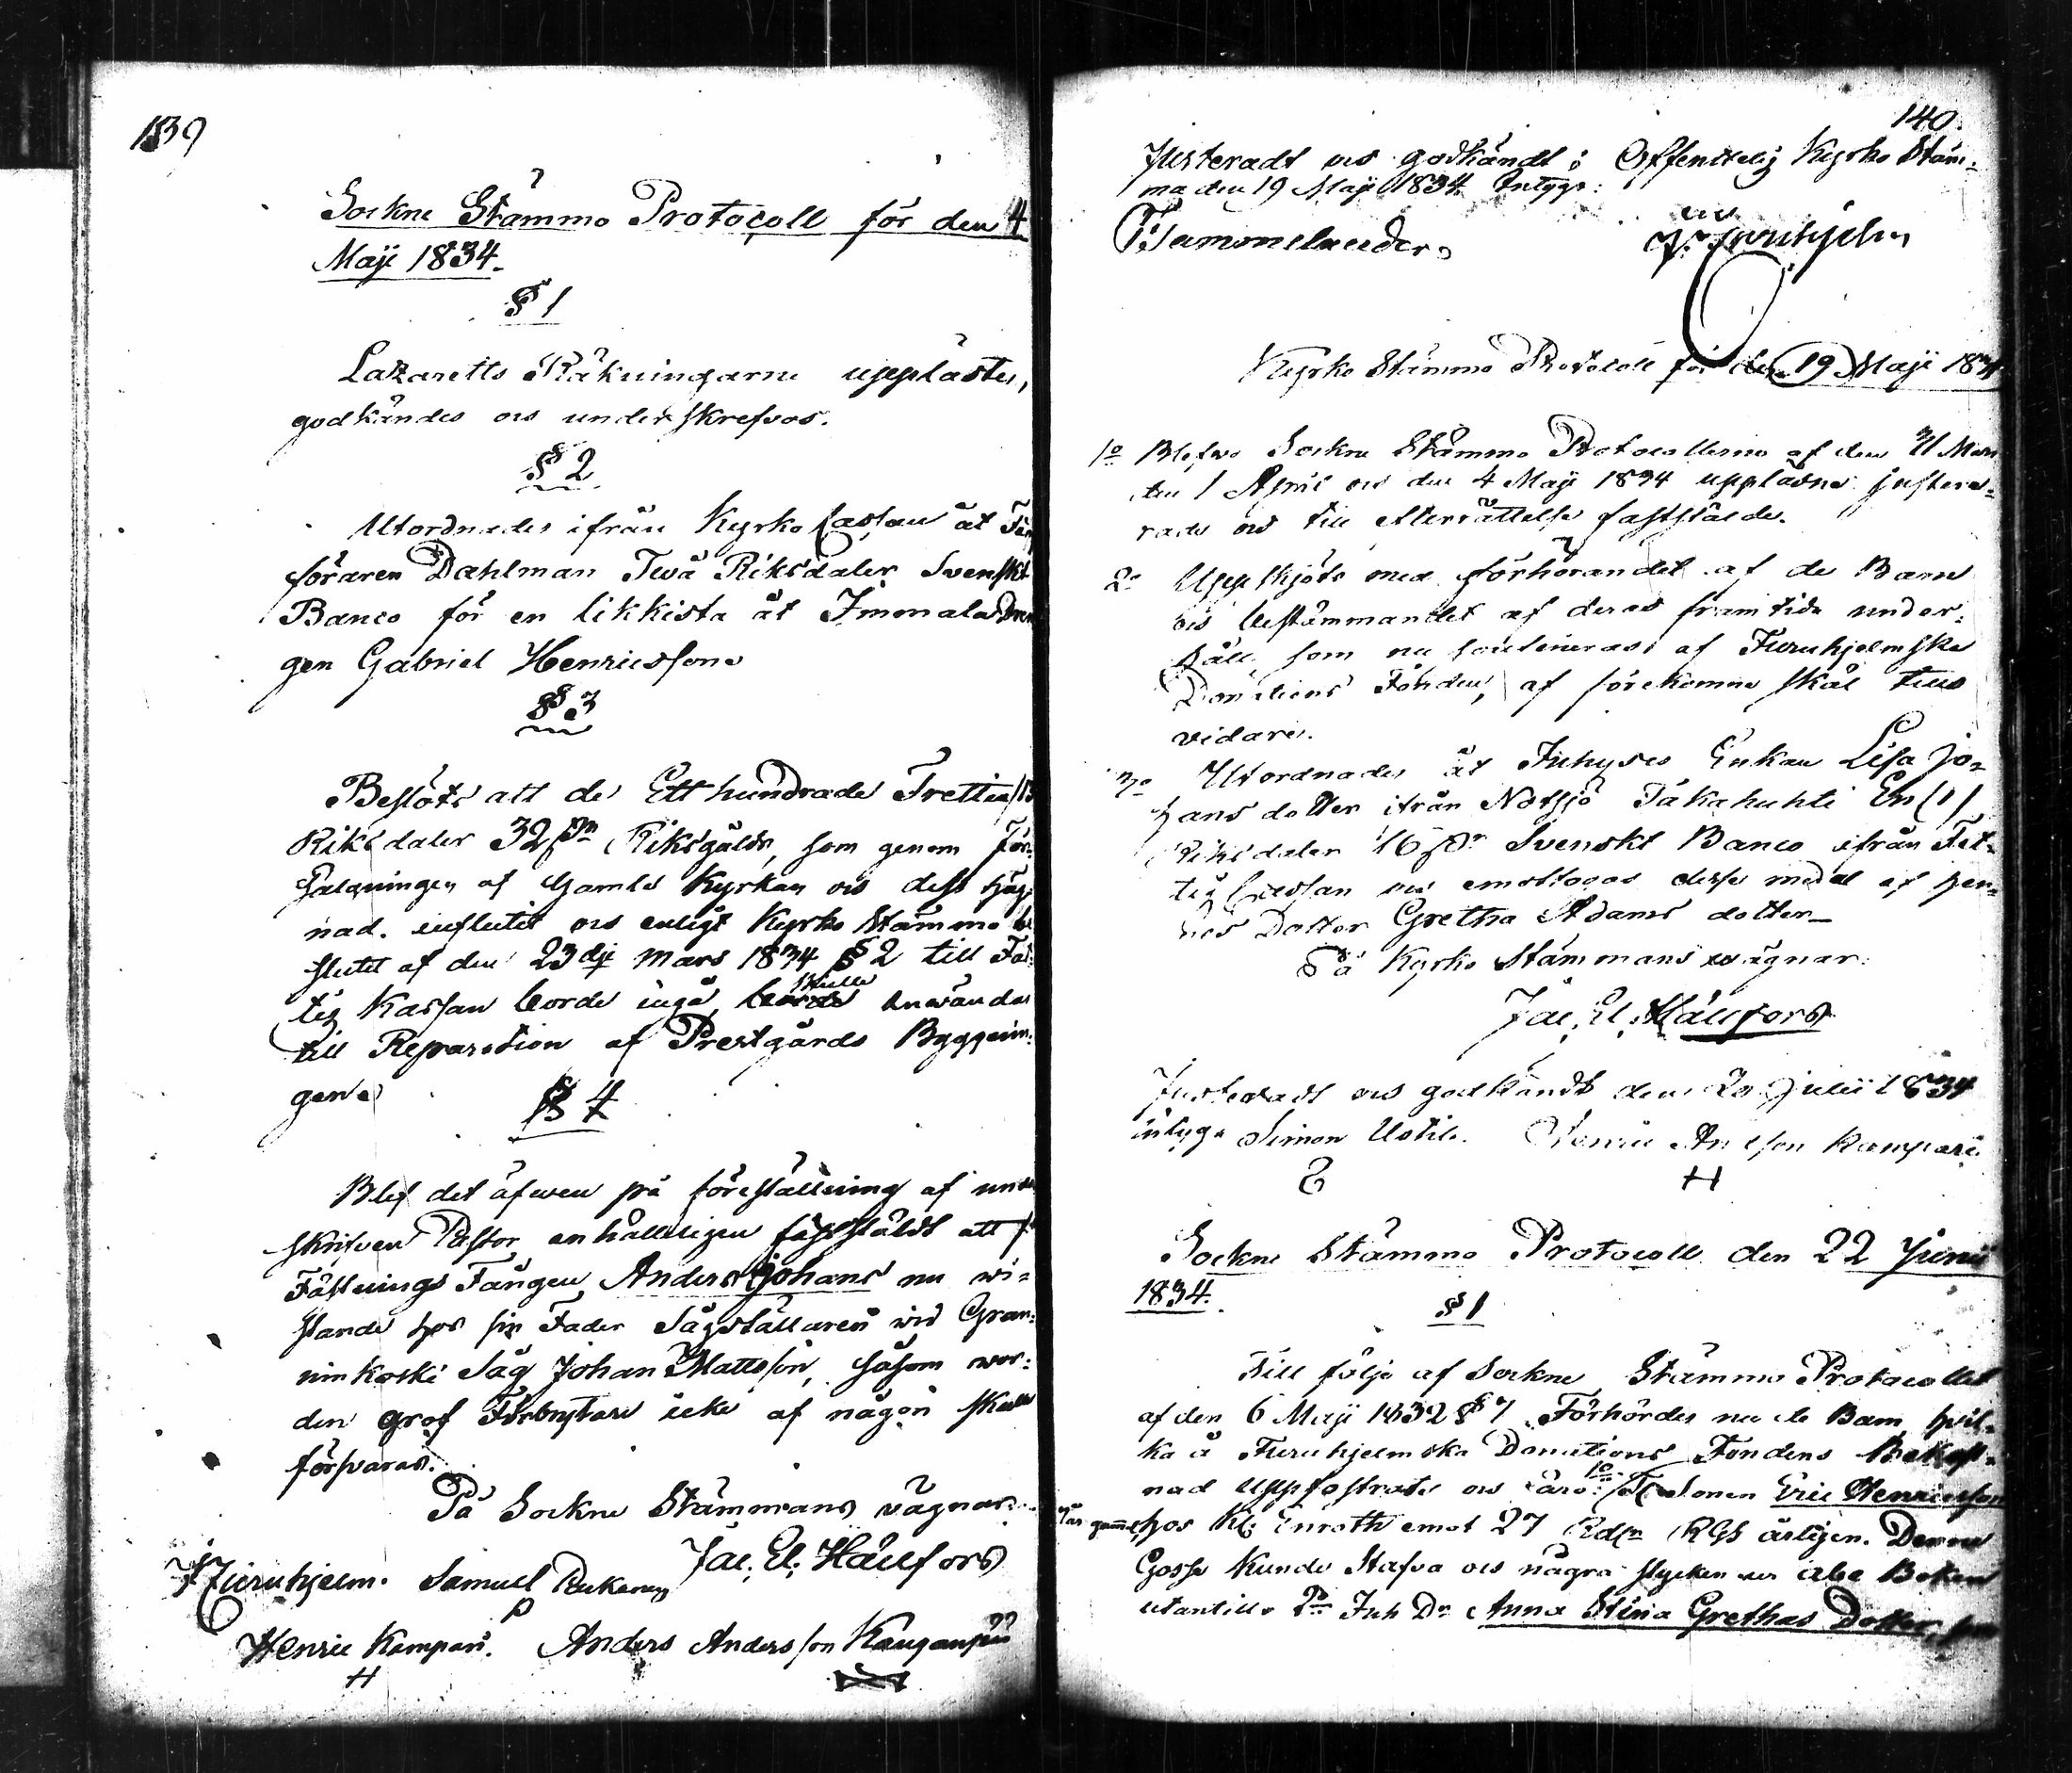 139
Sockne Stämmo Protocoll för den 4
Maji 1834.
§ 1
Lazaretts Räkningarne upplästes,
godkändes och underskrefvos.
§ 2
Utordnades ifrån Kyrko Cassan åt
föraren Dahlman Två Riksdaler Svenskt
Banco för en likkista åt Immala Dren
gen Gabriel Henricsson
§ 3
Beslöts att de Ett hundrade Trettio
Riksdaler 32 sk Riksgälds, som genom För-
säljningen af Gamla Kyrkan och dess häg-
nad influtit och enligt Kyrko Stämmo be
slutet af den 23dje Mars 1834 § 2 till Fat
tig Kassan borde ingå, skulle användas
till Reparation af Prestgårds Byggnin-
garne
§ 4
Blef det äfwen på föreställning af under
skrifven Pastor enhälleligen fastställdt att
Fästnings Fången Anders Johans nu wi-
stande hos sin Fader Sågställaren wid Gran-
ninkoski Såg Johan Mattsson, såsom wor-
den grof Förbrytare icke af någon skulle
försvaras.
På Sockne Stämmans vägnar.
Jac. El. Hällfors
Furuhjelm. Samuel
Henric Kampari. Anders Andersson
H
140.
Justeradt och godkändt i Offentelig Kyrko Stäm-
ma den 19 Maji 1834 Intyga:
Furuhjelm
Kyrko Stämmo Protocoll för den 19 Maji 1834
1o Blefvo Sockne Stämmo Protocollerne af den 31 Mars
den 1 April och den 4 Maji 1834 upplästne juste-
rade och till efterrättelse fastställde.
2o Uppskjöts med förhörandet af de Barn
och bestämmandet af deras framtida under-
håll som nu soutineras af Furuhjelmska
Donations Fonden, af förekomne skäl tills
vidare.
3o Utordnades åt Inhyses Enkan Lisa Jo-
hans dotter ifrån Notsjö Täkahuhti En (1)
Riksdaler 16 sk Svenskt Banco ifrån Fat-
tig Cassan och emottogos desse medel af hen-
nes Dotter Gretha Adams dotter
På Kyrko Stämmans wägnar:
Jac. El. Hällfors
Justeradt och godkändt den 20 Julii 1834
intyga Simon Ustila. Henric Kampari
H
Sockne Stämmo Protocoll den 22 Junii
1834.
§ 1
Till följe af Sockne Stämmo Protocollet
af den 6 Maji 1832 § 7 Förhördes nu de Barn hvil-
ka å Furuhjelmska Donations Fondens Bekost-
nad uppfostrats och äro: 1o Eric Henricsson
hos Enroth emot 27 Rdr RGS årligen. Denne
Gosse kunde Stafva och några stycken ur Abc Boken
utantill. 2o Inh Dr Anna Stina Grethas Dotter,